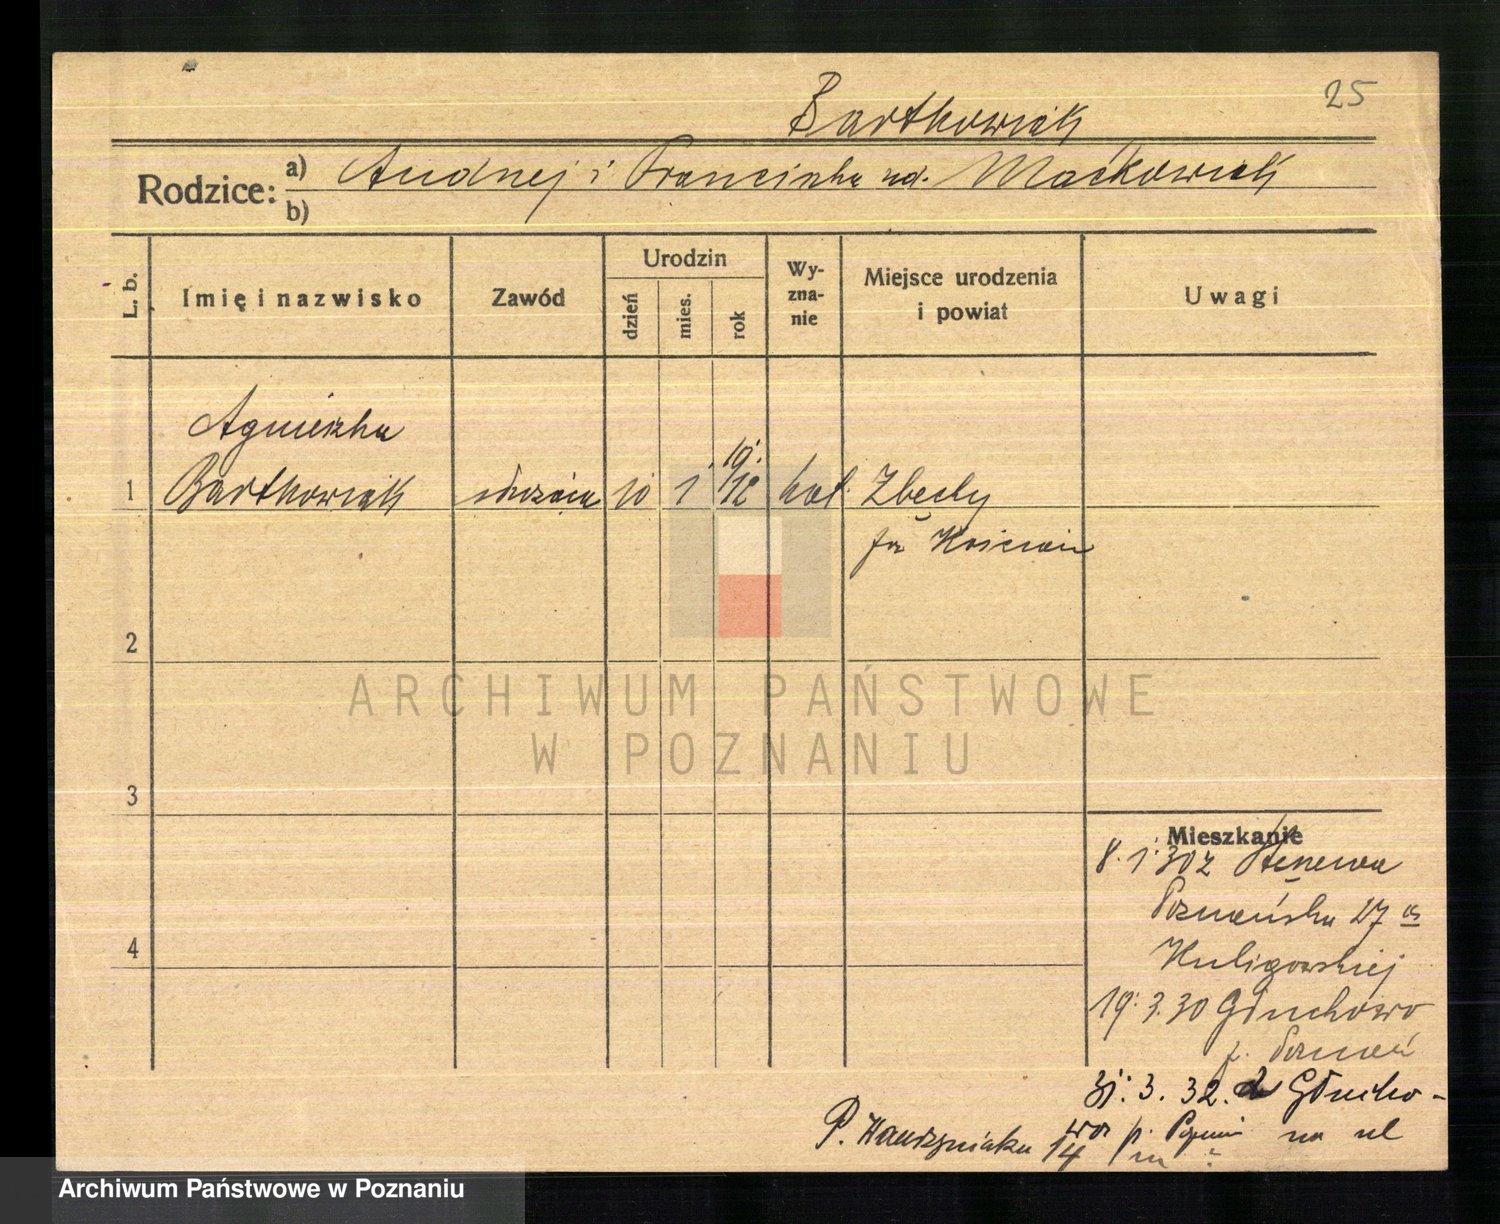 25
Bartkowiak
Rodzice:
a) Andrzej i Franciszka ur. Maćkowiak
b)
L. b.
Imię i nazwisko
Zawód
Urodzin
dzień
mies.
rok
Wy-
zna-
nie
Miejsce urodzenia
i powiat
Uwagi
Agnieszka
1 Bartkowiak służąca 10 1. 19. /12 kat. Zbęchy
pow Kościan
2
ARCHIWUM PAŃSTWOWE
W POZNANIU
3
Mieszkanie
8. 1. 30 z Stęszewa
Poznańska 27
4
Kuligowskiej
19. 3. 30 Głuchowo
p. Poznań
31. 3. 32. z Głucho-
wa p. Poznań na ul
P. Wawrzyniaka 14
Archiwum Państwowe w Poznaniu